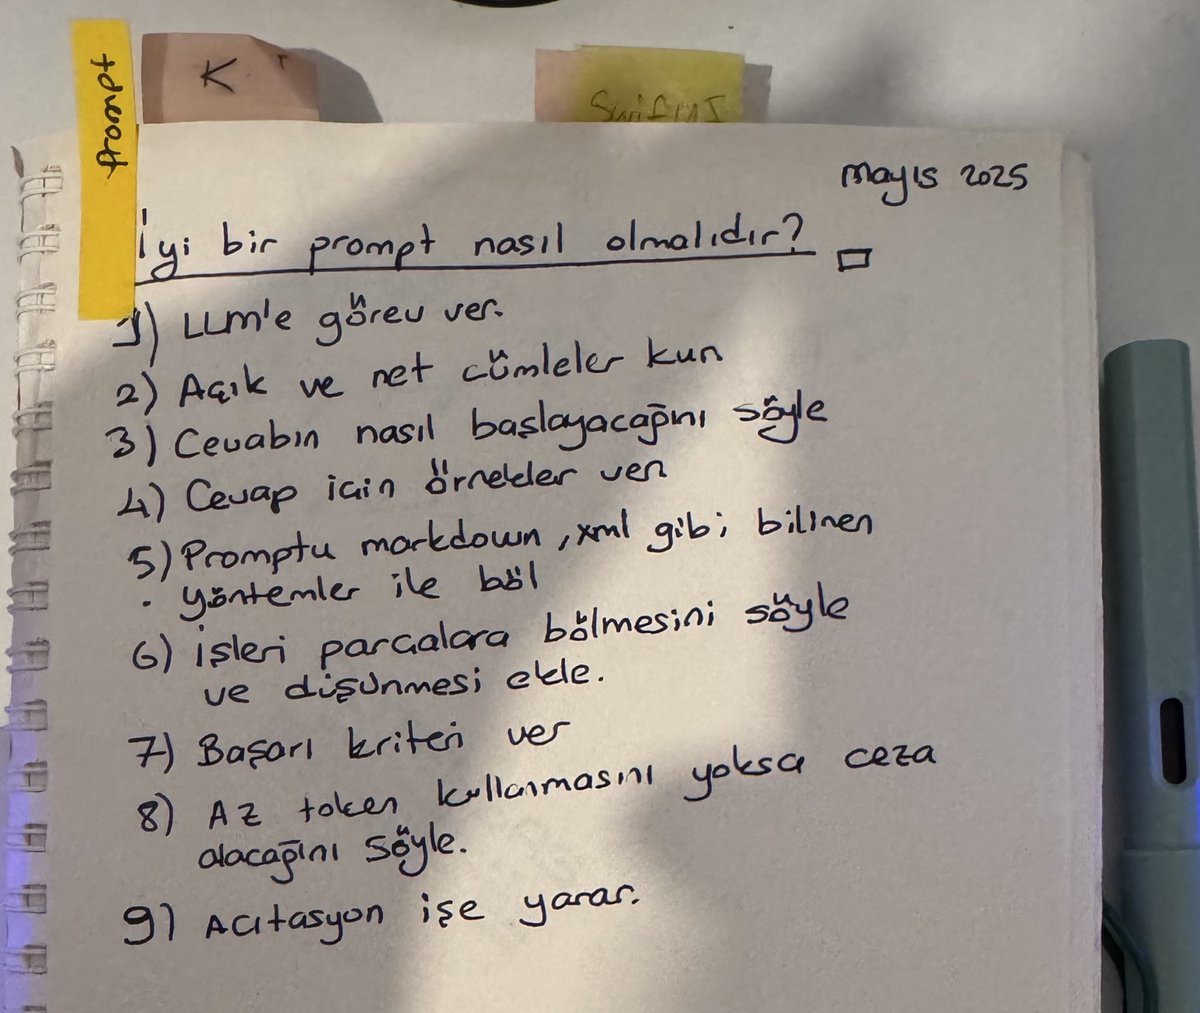 prompt
K
SwiftUI
Mayıs 2025
İyi bir prompt nasıl olmalıdır?
1) LLM'e görev ver.
2) Açık ve net cümleler kur
3) Cevabın nasıl başlayacağını söyle
4) Cevap için örnekler ver
5) Promptu markdown, xml gibi bilinen
yöntemler ile böl
6) işleri parçalara bölmesini söyle
ve düşünmesi ekle.
7) Başarı kriteri ver
8) Az token kullanmasını yoksa ceza
alacağını söyle.
9) Acıtasyon işe yarar.